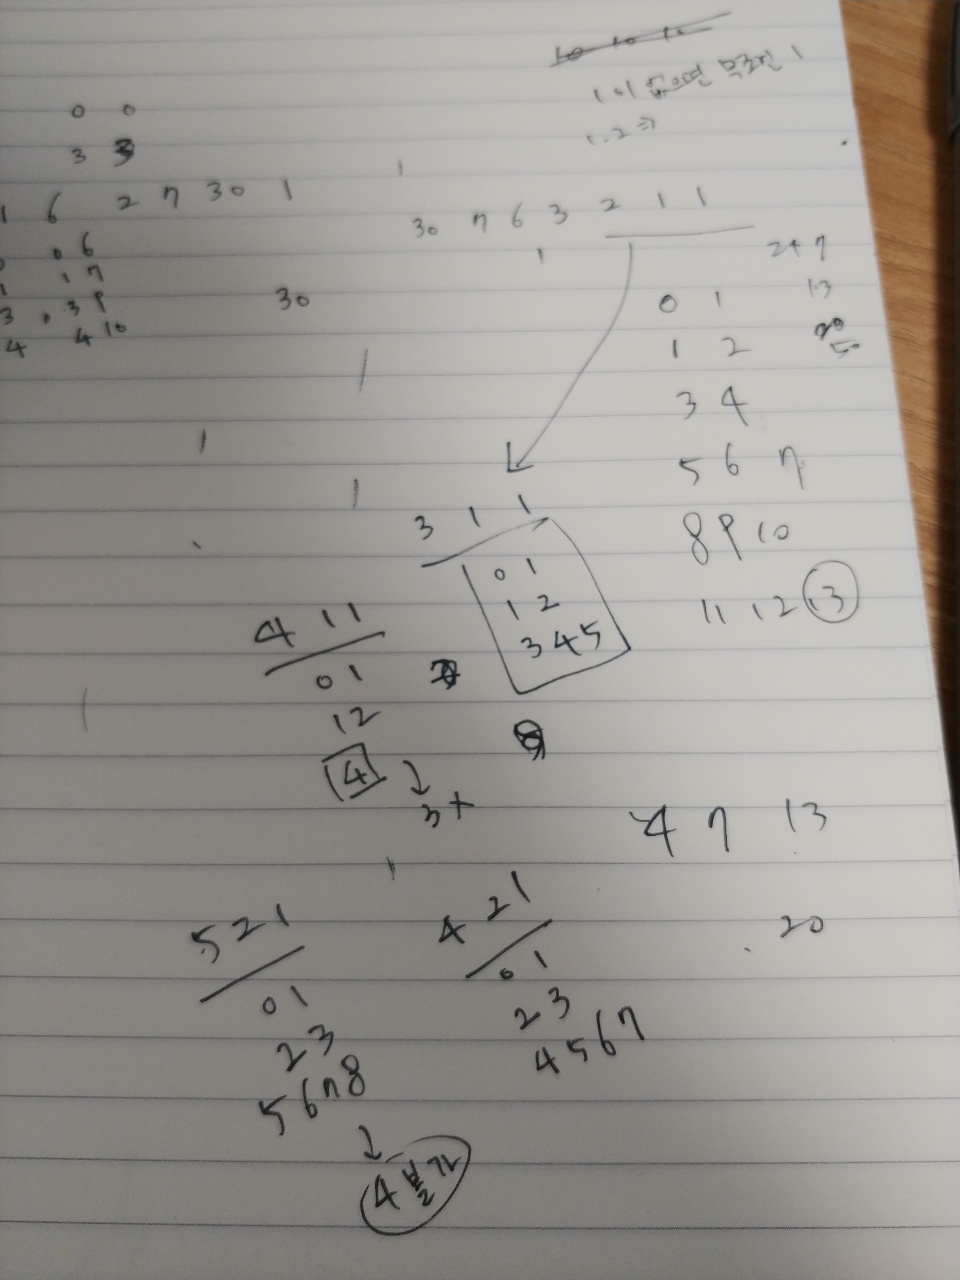 10 10 10
1이 없으면 무조건 1
1.2 ⇒
0 0
3 3
1 6 2 7 30 1
0 6
1 7
3 3 9
4 4 10
30
30 7 6 3 2 1 1
2 4 7
0 1 13
1 2 20
3 4
5 6 7
8 9 10
11 12 13
3 1 1
0 1
1 2
3 4 5
4 1 1
0 1
1 2
4
3 x
4 7 13
20
5 2 1
0 1
2 3
5 6 7 8
4 불가
4 2 1
0 1
2 3
4 5 6 7